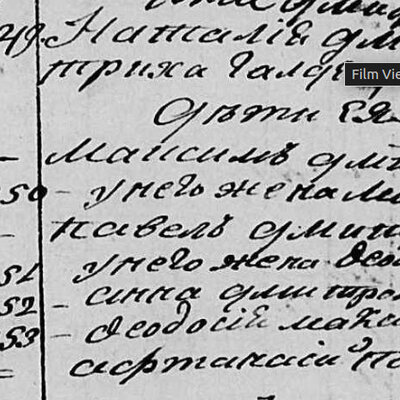 49. Наталія дми
триха Галде
Film Vie
дѣти Ея
Максимъ дми
50 – у него жена Ма
Павелъ дмит
51 у него жена Ѳеод
52 – анна дмитро
53 – Ѳеодосія мака
аѳтанасій Па